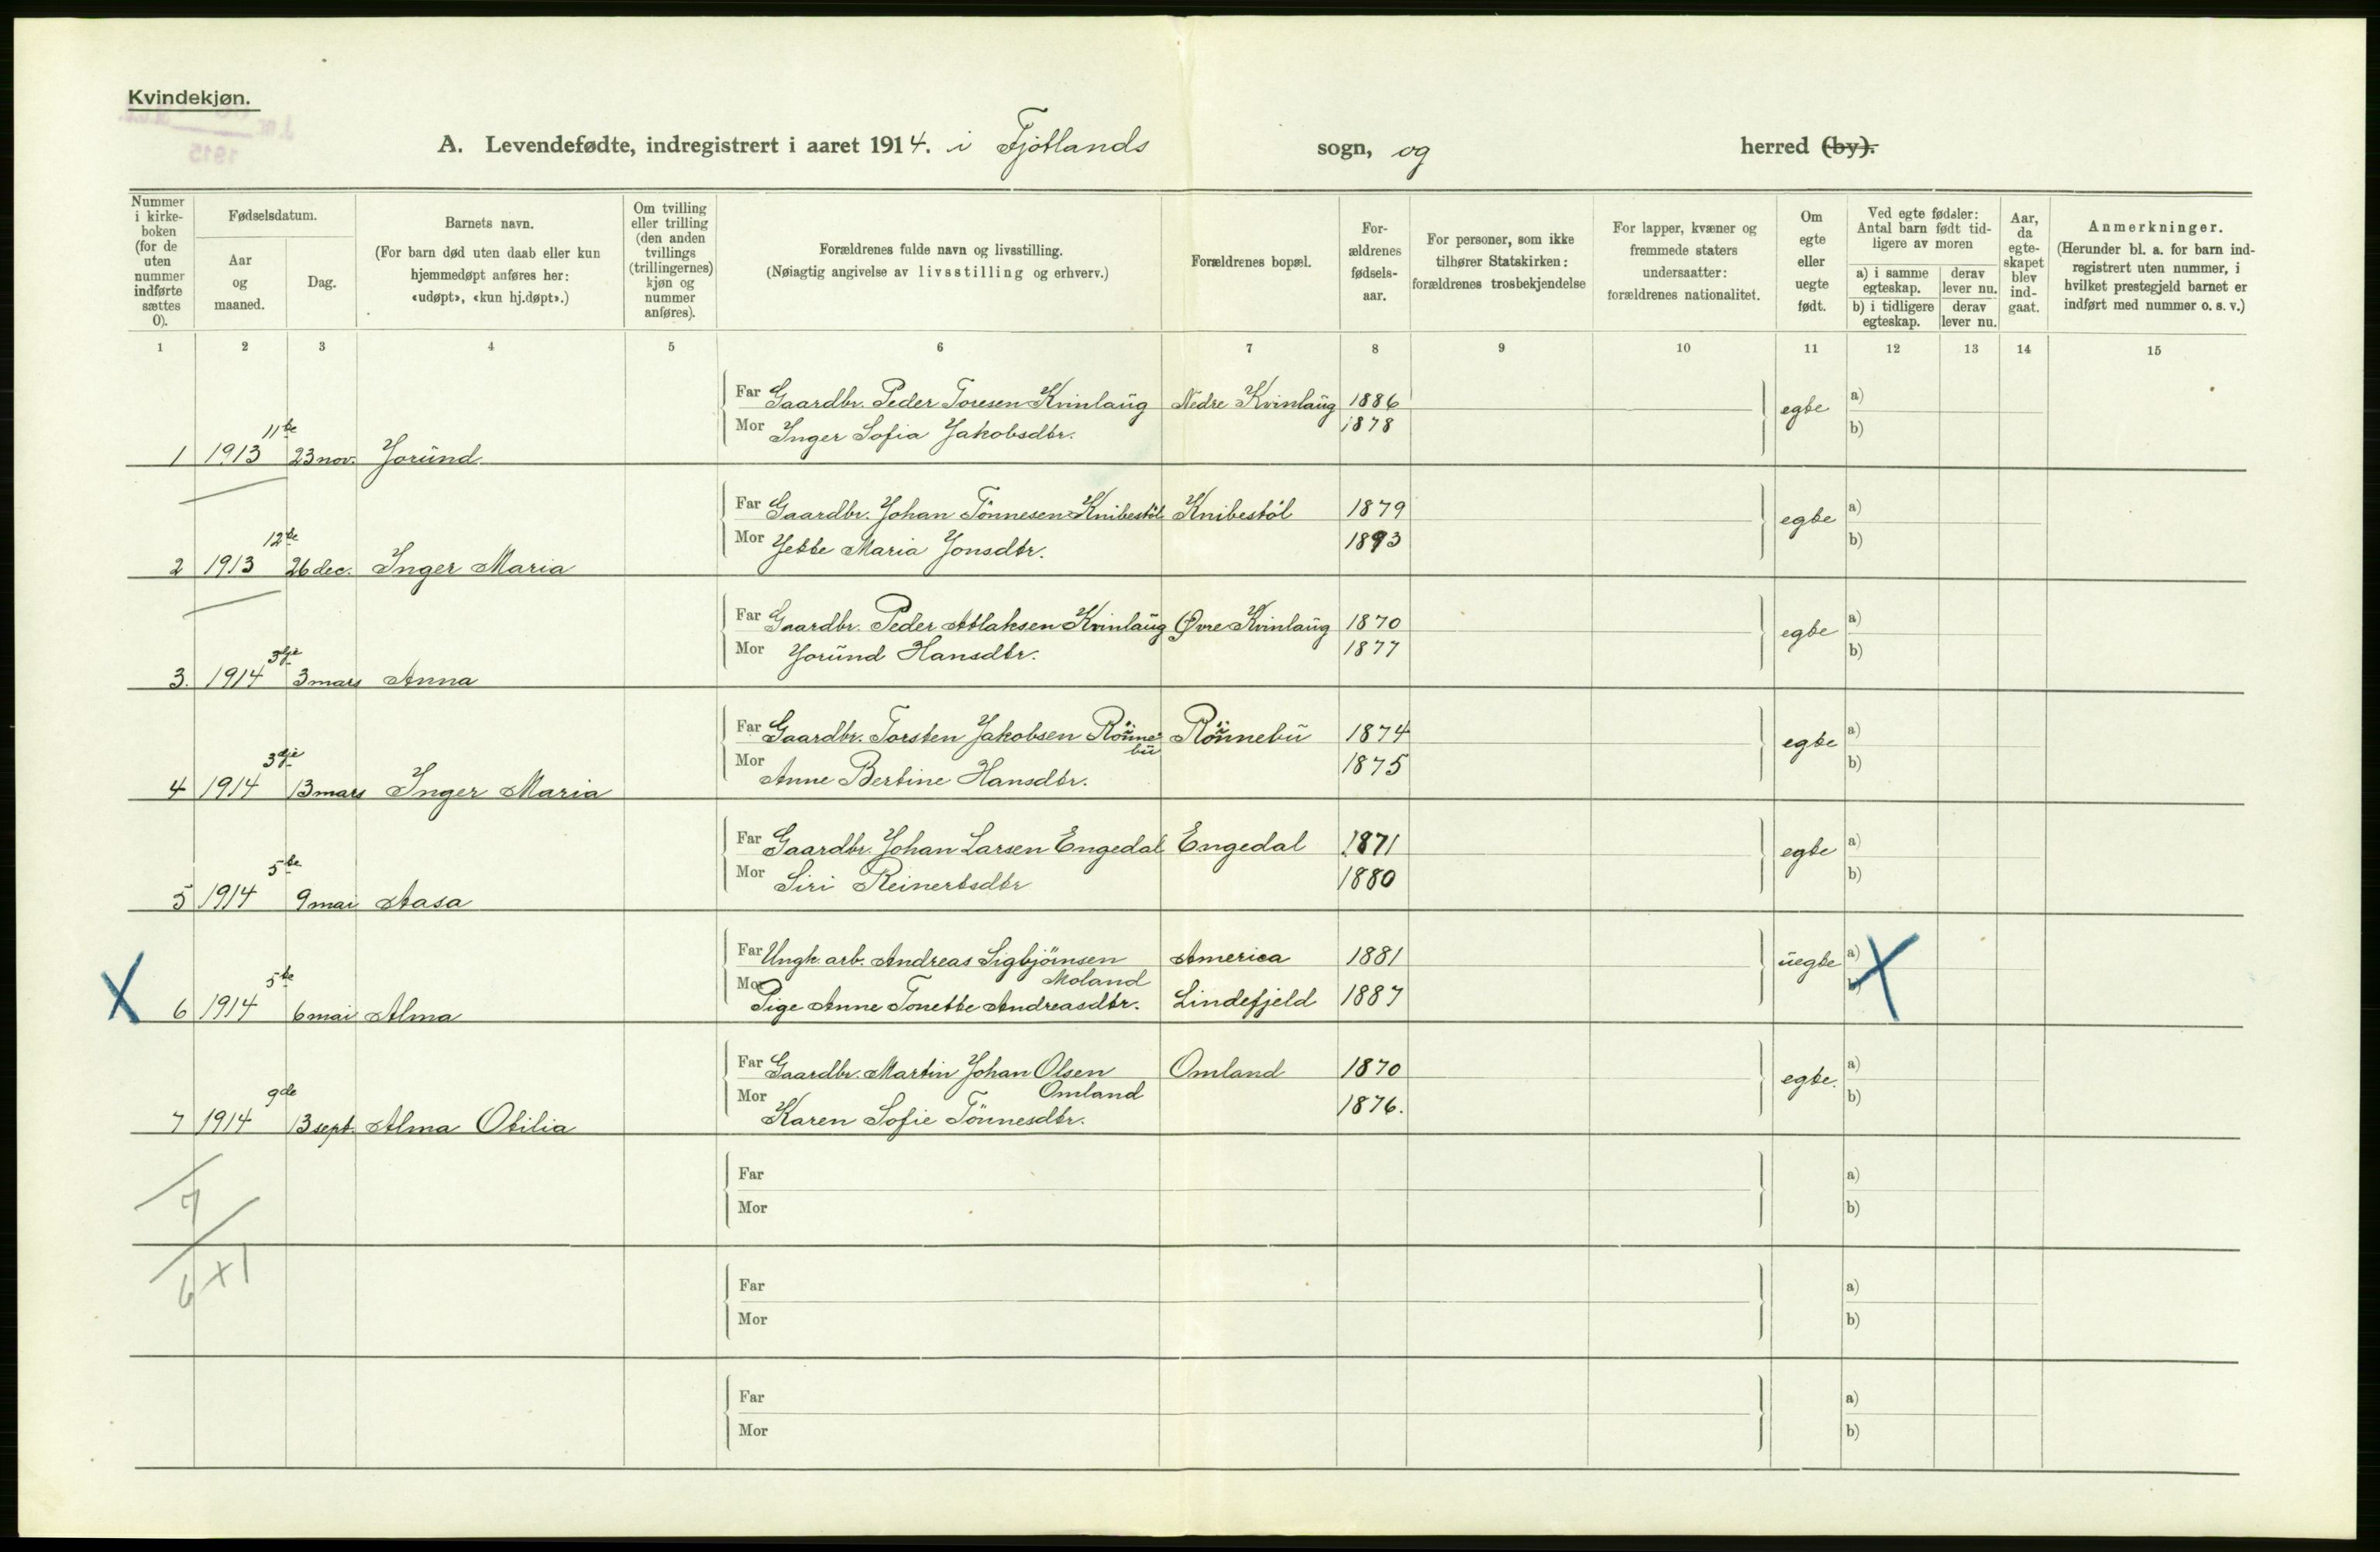 Kvindekjøn.
A. Levendefødte, indregistrert i aaret 1914. i Fjotlands sogn, og herred (by).
Nummer i kirkeboken (for de uten nummer indførte sættes 0).
Fødselsdatum.
Aar og maaned.
Dag.
Barnets navn.
(For barn død uten daab eller kun hjemmedøpt anføres her: «udøpt», «kun hj.døpt».)
Om tvilling eller trilling (den anden tvillings (trillingernes) kjøn og nummer anføres).
Forældrenes fulde navn og livsstilling.
(Nøiagtig angivelse av livsstilling og erhverv.)
Forældrenes bopæl.
Forældrenes fødselsaar.
For personer, som ikke tilhører Statskirken: forældrenes trosbekjendelse
For lapper, kvæner og fremmede staters undersaatter: forældrenes nationalitet.
Om egte eller uegte født.
Ved egte fødsler: Antal barn født tidligere av moren
a) i samme egteskap.
derav lever nu.
b) i tidligere egteskap.
derav lever nu.
Aar, da egteskapet blev indgaat.
Anmerkninger.
(Herunder bl. a. for barn indregistrert uten nummer, i hvilket prestegjeld barnet er indført med nummer o. s. v.)
1 2 3 4 5 6 7 8 9 10 11 12 13 14 15
Far Gaardbr. Peder Toresen Kvinlaug Nedre Kvinlaug 1886 egte a)
Mor Inger Sofia Jakobsdtr. 1878 b)
1 1913 11te 23 nov. Jorund
Far Gaardbr. Johan Tönnesen Knibestöl Knibestöl 1879 egte a)
Mor Jette Maria Jonsdtr. 1893 b)
2 1913 12te 26 dec. Inger Maria
Far Gaardbr. Peder Atlaksen Kvinlaug Øvre Kvinlaug 1870 egte a)
Mor Jorund Hansdtr. 1877 b)
3. 1914 3dje 3 mars Anna
Far Gaardbr. Torsten Jakobsen Rönnebu Rönnebu 1874 egte a)
Mor Anne Bertine Hansdtr. 1875 b)
4 1914 3dje 13 mars Inger Maria
Far Gaardbr. Johan Larsen Engedal Engedal 1871 egte a)
Mor Siri Reinertsdtr 1880 b)
5 1914 5te 9 mai Aasa
Far Ungk. arb. Andreas Sigbjörnsen Moland America 1881 uegte a)
Mor Pige Anne Tonette Andreasdtr. Lindefjeld 1887 b)
X 6 1914 5te 6 mai Alma X
Far Gaardbr. Martin Johan Olsen Omland Omland 1870 egte. a)
Mor Karen Sofie Tönnesdtr. 1876. b)
7 1914 9de 13 sept. Alma Otilia
Far a)
Mor b)
7
6 + 1
Far a)
Mor b)
Far a)
Mor b)